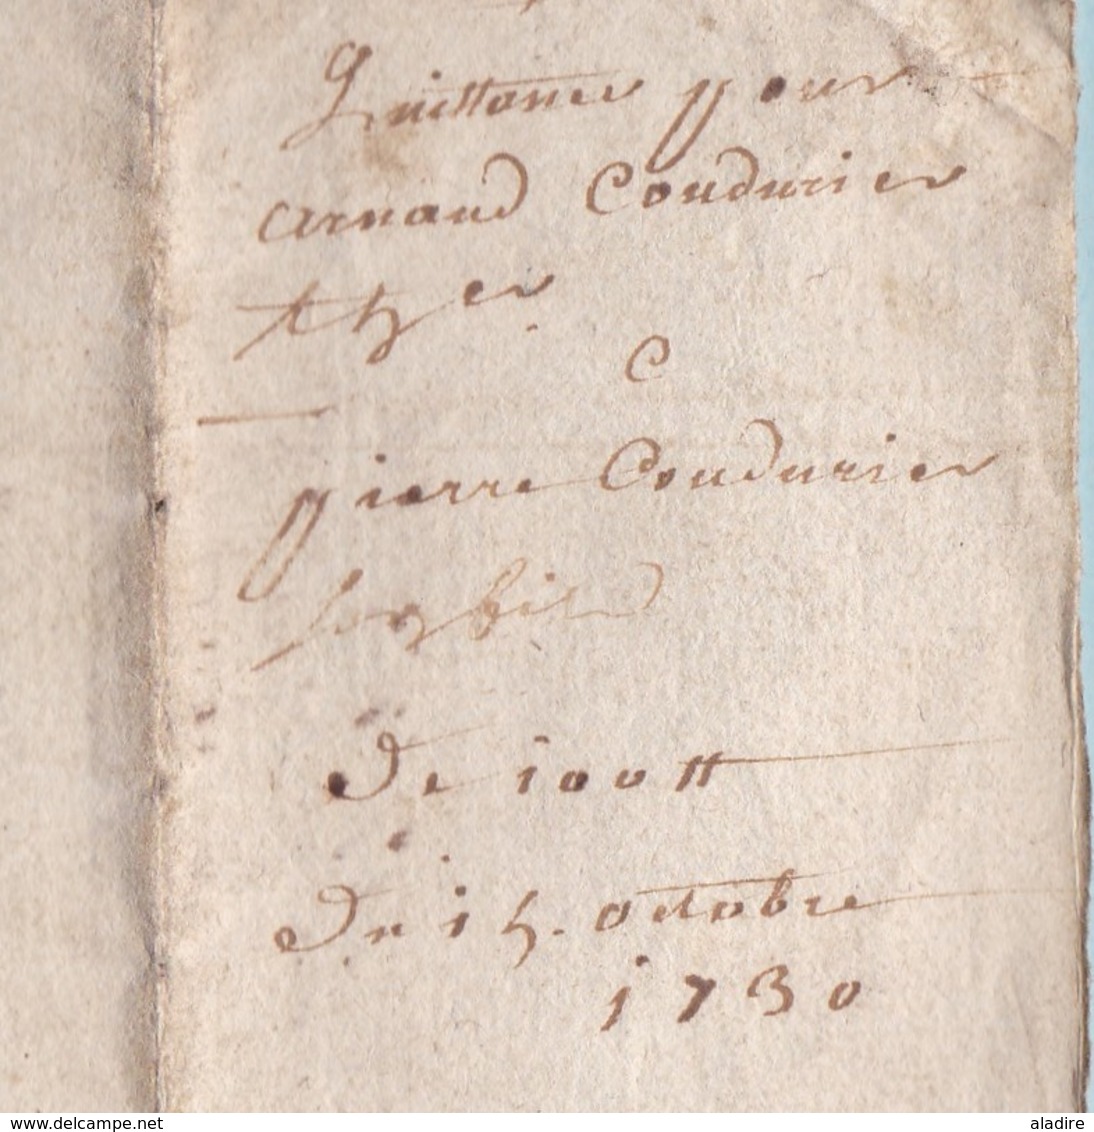 Quittance pour
arnaud Condurier
C
pierre Condurier
son fils
De 100 tt
Du 15. octobre
1730
www.delcampe.net
aladire